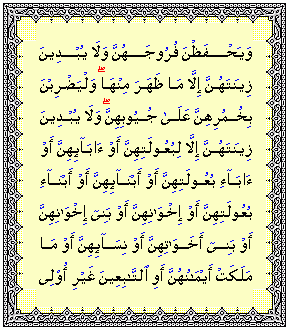 وَيَحْفَظْنَ فُرُوجَهُنَّ وَلَا يُبْدِينَ
زِينَتَهُنَّ إِلَّا مَا ظَهَرَ مِنْهَا ۖ وَلْيَضْرِبْنَ
بِخُمُرِهِنَّ عَلَىٰ جُيُوبِهِنَّ ۖ وَلَا يُبْدِينَ
زِينَتَهُنَّ إِلَّا لِبُعُولَتِهِنَّ أَوْ ءَابَآئِهِنَّ أَوْ
ءَابَآءِ بُعُولَتِهِنَّ أَوْ أَبْنَآئِهِنَّ أَوْ أَبْنَآءِ
بُعُولَتِهِنَّ أَوْ إِخْوَٰنِهِنَّ أَوْ بَنِىٓ إِخْوَٰنِهِنَّ
أَوْ بَنِىٓ أَخَوَٰتِهِنَّ أَوْ نِسَآئِهِنَّ أَوْ مَا
مَلَكَتْ أَيْمَٰنُهُنَّ أَوِ ٱلتَّٰبِعِينَ غَيْرِ أُو۟لِى